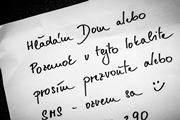 Hľadám Dom alebo
Pozemok v tejto lokalite
prosím prezvonte alebo
SMS - ozvem sa
290